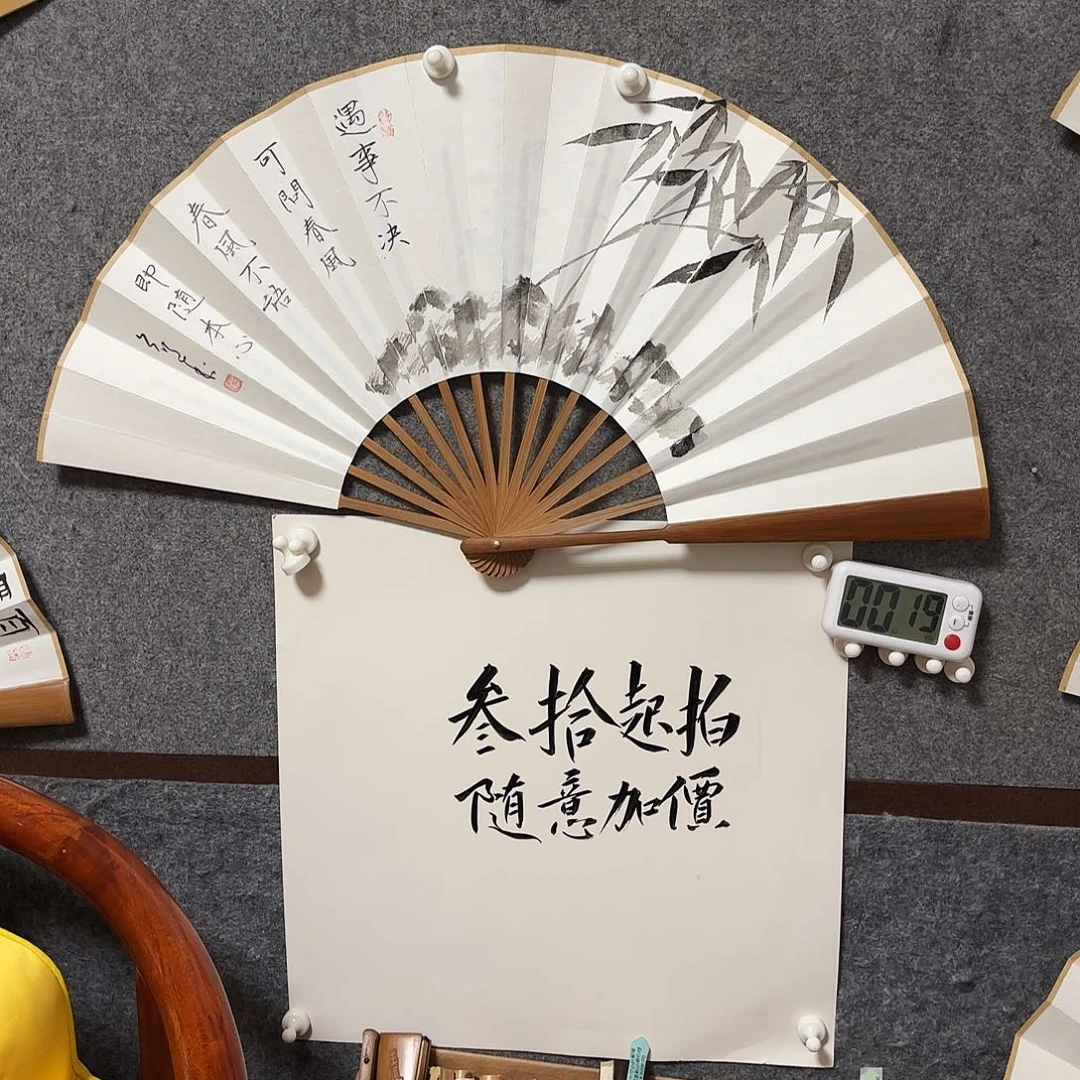 遇事不决
可問春風
春風不語
即隨本心
叁拾起拍
隨意加價
00 19